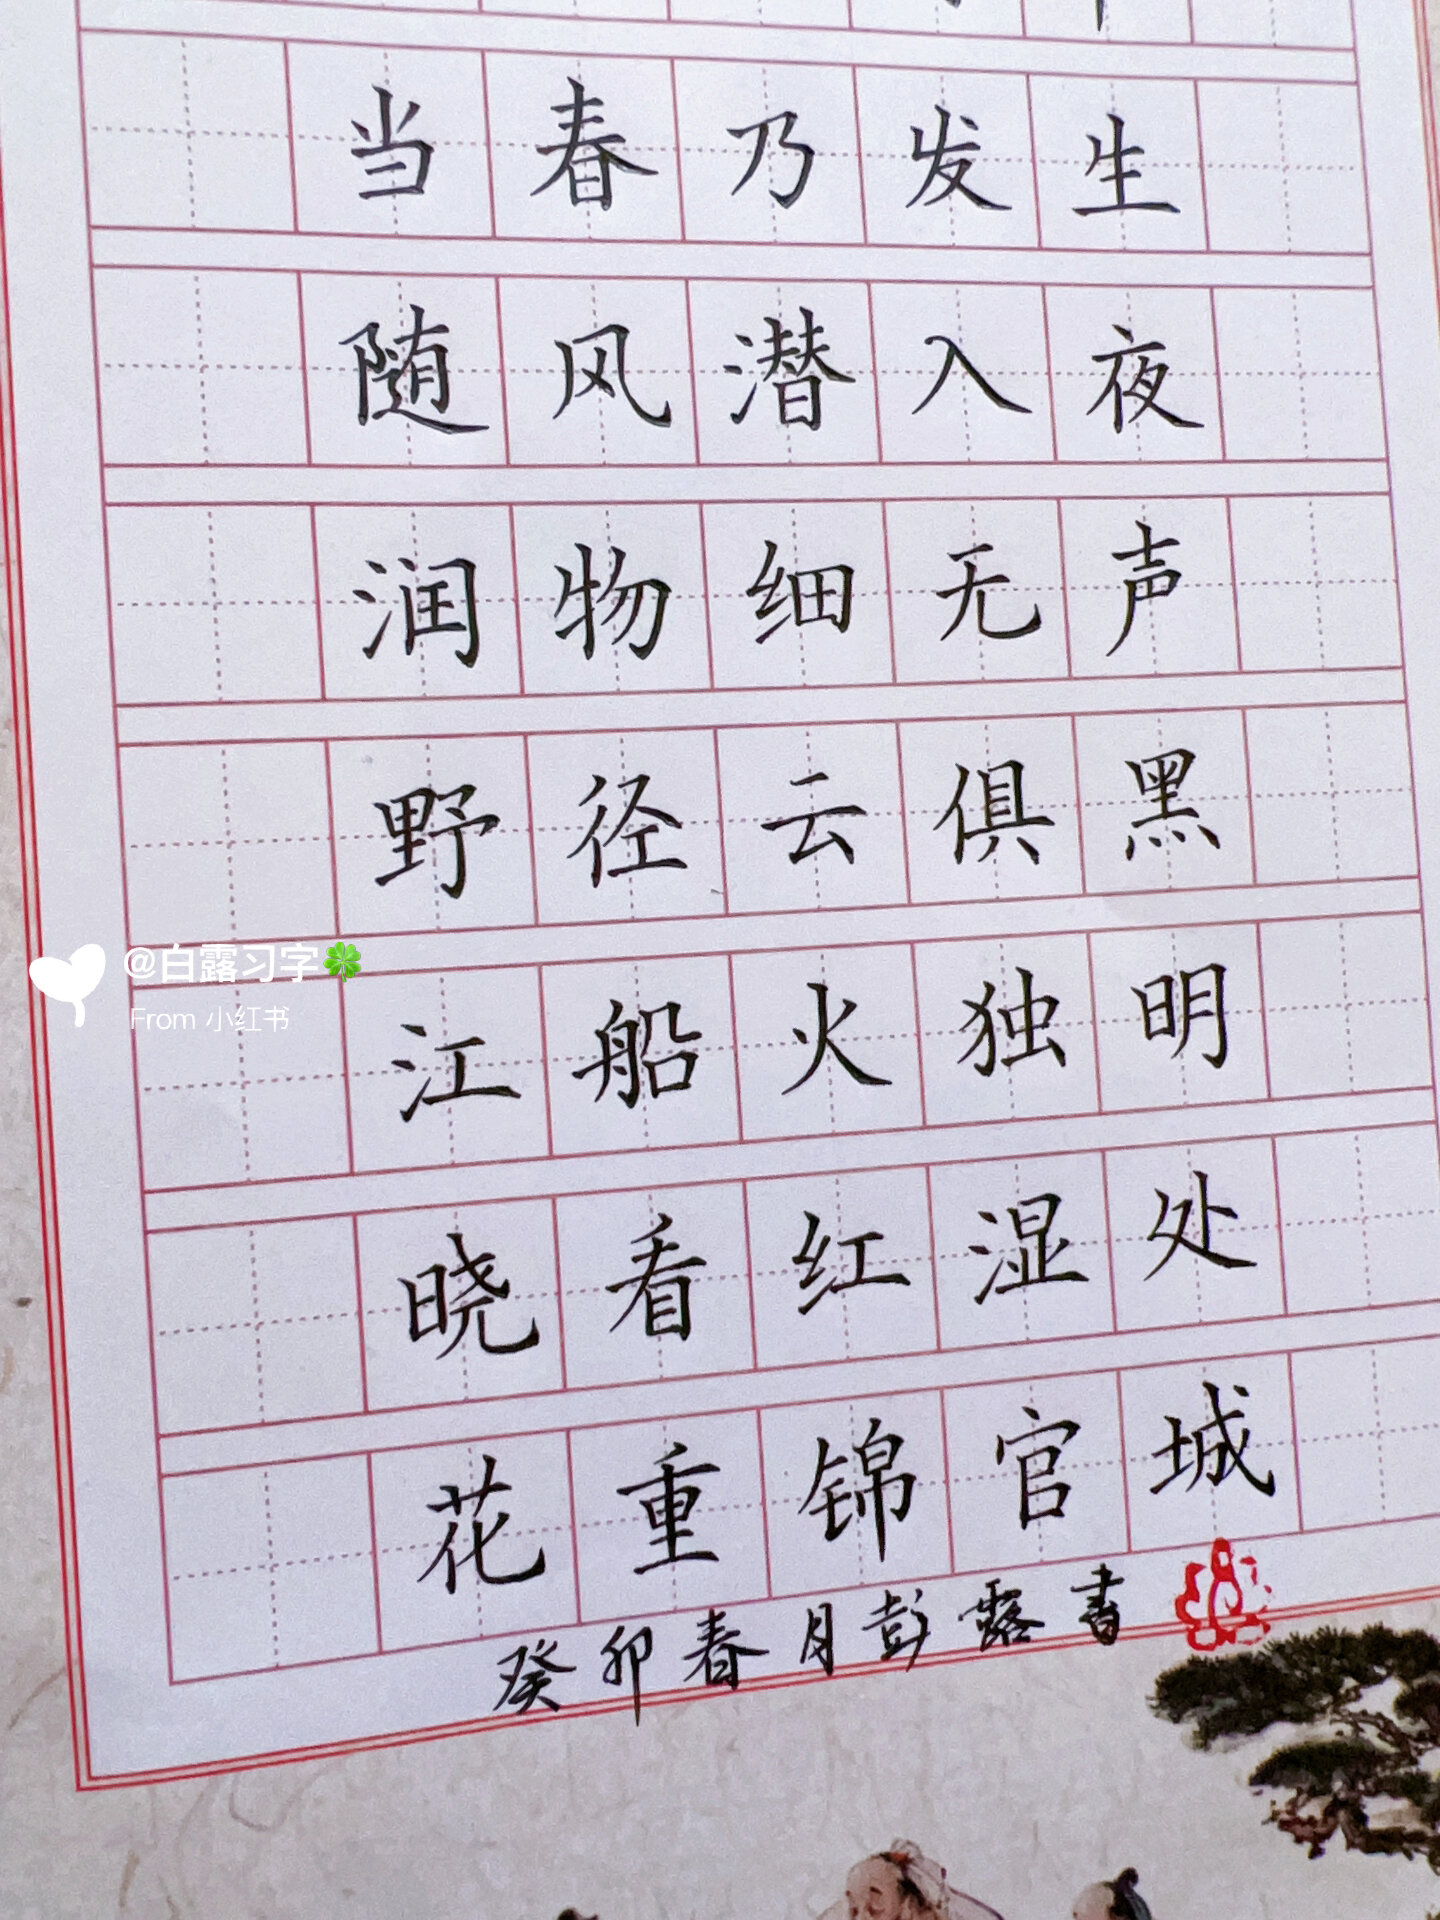 当春乃发生
随风潜入夜
润物细无声
野径云俱黑
@白露习字🍀
From 小红书
江船火独明
晓看红湿处
花重锦官城
癸卯春月彭露书